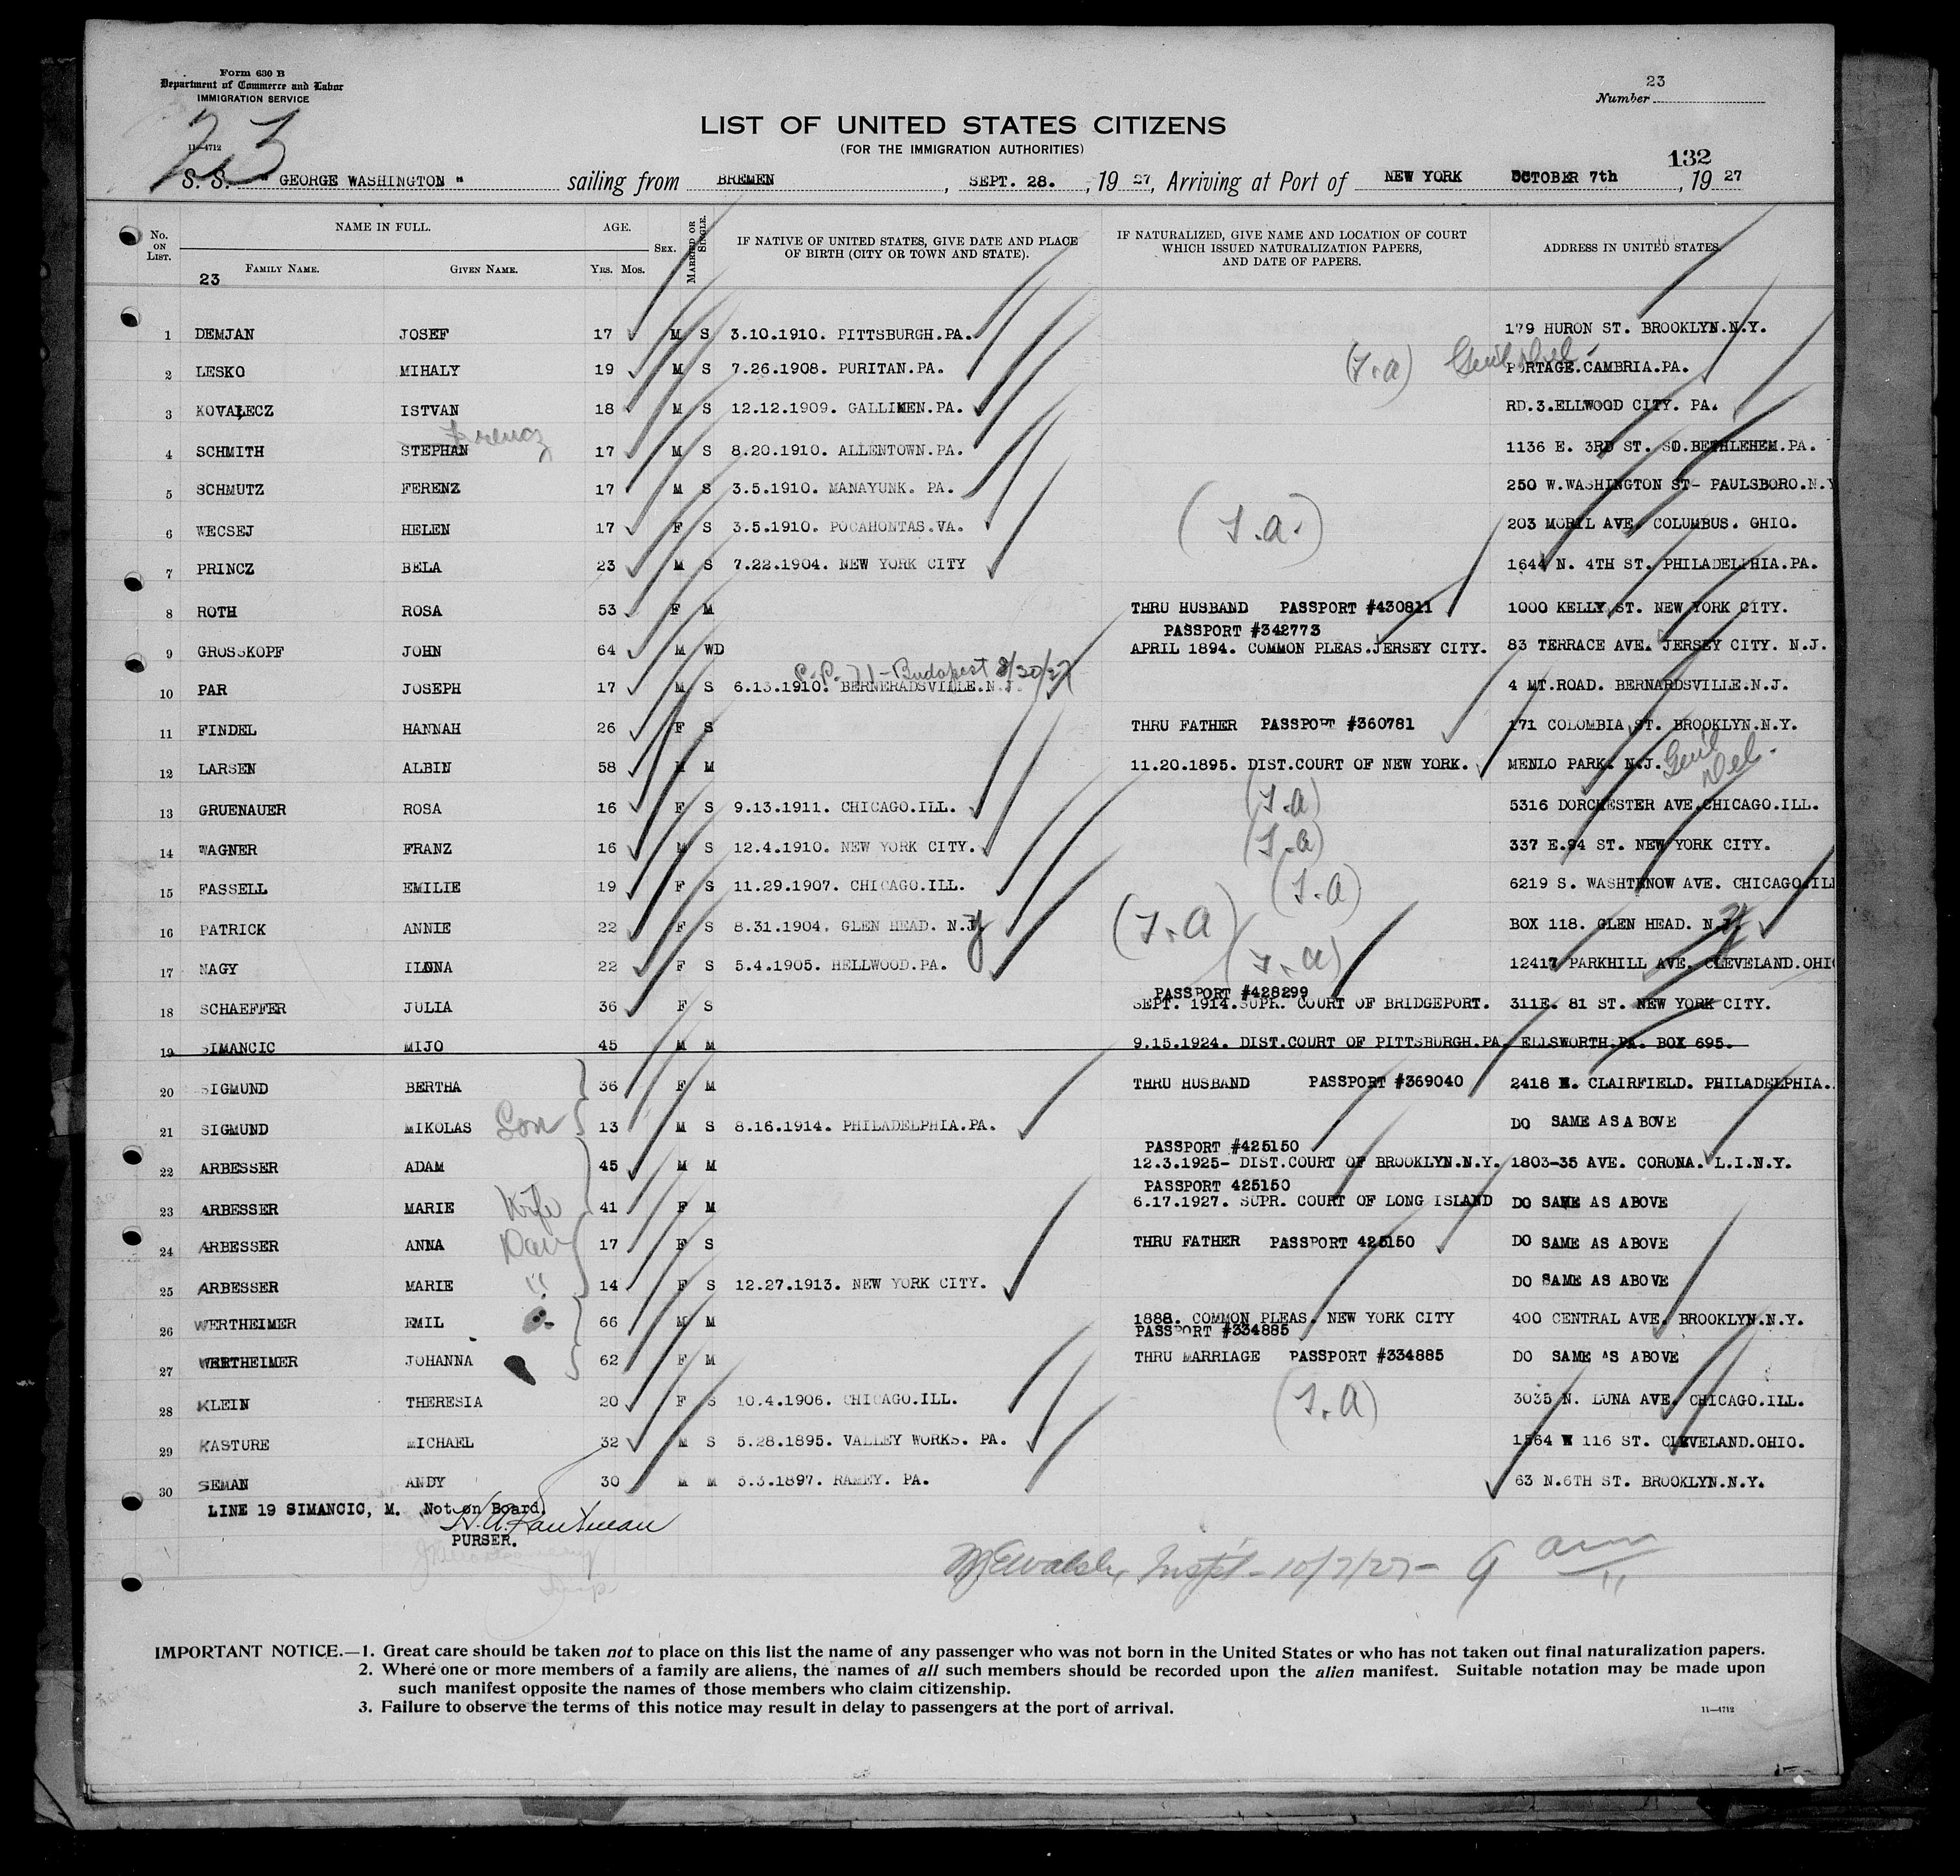 Form 630 B
Department of Commerce and Labor
IMMIGRATION SERVICE
23
11—4712
23
Number
LIST OF UNITED STATES CITIZENS
(FOR THE IMMIGRATION AUTHORITIES)
132
S. S. " GEORGE WASHINGTON " sailing from BREMEN, SEPT. 28., 1927, Arriving at Port of NEW YORK OCTOBER 7th, 1927
No. ON LIST. NAME IN FULL. FAMILY NAME. GIVEN NAME. AGE. YRS. MOS. SEX. MARRIED OR SINGLE. IF NATIVE OF UNITED STATES, GIVE DATE AND PLACE OF BIRTH (CITY OR TOWN AND STATE). IF NATURALIZED, GIVE NAME AND LOCATION OF COURT WHICH ISSUED NATURALIZATION PAPERS, AND DATE OF PAPERS. ADDRESS IN UNITED STATES
23
1 DEMJAN JOSEF 17 M S 3.10.1910. PITTSBURGH.PA. 179 HURON ST. BROOKLYN.N.Y.
2 LESKO MIHALY 19 M S 7.26.1908. PURITAN.PA. PORTAGE.CAMBRIA.PA.
3 KOVALECZ ISTVAN 18 M S 12.12.1909. GALLIMEN.PA. RD.3.ELLWOOD CITY. PA.
4 SCHMITH STEPHAN 17 M S 8.20.1910. ALLENTOWN.PA. 1136 E. 3RD ST. SO.BETHLEHEM.PA.
5 SCHMUTZ FERENZ 17 M S 3.5.1910. MANAYUNK. PA. 250 W.WASHINGTON ST- PAULSBORO.N.Y
6 WECSEJ HELEN 17 F S 3.5.1910. POCAHONTAS.VA. 203 MORIL AVE. COLUMBUS. OHIO.
7 PRINCZ BELA 23 M S 7.22.1904. NEW YORK CITY 1644 N. 4TH ST. PHILADELPHIA.PA.
8 ROTH ROSA 53 F M THRU HUSBAND PASSPORT #430811 1000 KELLY ST. NEW YORK CITY.
PASSPORT #342773
9 GROSSKOPF JOHN 64 M WD APRIL 1894. COMMON PLEAS.JERSEY CITY. 83 TERRACE AVE. JERSEY CITY. N.J.
10 PAR JOSEPH 17 M S 6.13.1910. BERNERADSVILLE.N.J. 4 MT.ROAD. BERNARDSVILLE.N.J.
11 FINDEL HANNAH 26 F S THRU FATHER PASSPORT #360781 171 COLOMBIA ST. BROOKLYN.N.Y.
12 LARSEN ALBIN 58 M M 11.20.1895. DIST.COURT OF NEW YORK. MENLO PARK. N.J.
13 GRUENAUER ROSA 16 F S 9.13.1911. CHICAGO.ILL. 5316 DORCHESTER AVE.CHICAGO.ILL.
14 WAGNER FRANZ 16 M S 12.4.1910. NEW YORK CITY. 337 E.94 ST. NEW YORK CITY.
15 FASSELL EMILIE 19 F S 11.29.1907. CHICAGO.ILL. 6219 S. WASHTENOW AVE. CHICAGO.ILL
16 PATRICK ANNIE 22 F S 8.31.1904. GLEN HEAD. N.Y BOX 118. GLEN HEAD. N.Y
17 NAGY ILONA 22 F S 5.4.1905. HELLWOOD.PA. 12417 PARKHILL AVE. CLEVELAND.OHIO
PASSPORT #428299
18 SCHAEFFER JULIA 36 F S SEPT. 1914.SUPR. COURT OF BRIDGEPORT. 311E. 81 ST. NEW YORK CITY.
19 SIMANCIC MIJO 45 M M 9.15.1924. DIST.COURT OF PITTSBURGH.PA. ELLSWORTH.PA. BOX 695.
20 SIGMUND BERTHA 36 F M THRU HUSBAND PASSPORT #369040 2418 N. CLAIRFIELD. PHILADELPHIA.
21 SIGMUND MIKOLAS Son 13 M S 8.16.1914. PHILADELPHIA.PA. DO SAME AS A BOVE
PASSPORT #425150
22 ARBESSER ADAM 45 M M 12.3.1925- DIST.COURT OF BROOKLYN.N.Y. 1803-35 AVE. CORONA. L.I.N.Y.
PASSPORT 425150
23 ARBESSER MARIE Wife 41 F M 6.17.1927. SUPR. COURT OF LONG ISLAND DO SAME AS ABOVE
24 ARBESSER ANNA Dau 17 F S THRU FATHER PASSPORT 425150 DO SAME AS ABOVE
25 ARBESSER MARIE " 14 F S 12.27.1913. NEW YORK CITY. DO SAME AS ABOVE
26 WERTHEIMER EMIL 66 M M 1888. COMMON PLEAS. NEW YORK CITY 400 CENTRAL AVE. BROOKLYN.N.Y.
PASSPORT #334885
27 WERTHEIMER JOHANNA 62 F M THRU MARRIAGE PASSPORT #334885 DO SAME AS ABOVE
28 KLEIN THERESIA 20 F S 10.4.1906. CHICAGO.ILL. (T.A) 3035 N. LUNA AVE. CHICAGO.ILL.
29 KASTURE MICHAEL 32 M S 5.28.1895. VALLEY WORKS. PA. 1564 W 116 ST. CLEVELAND.OHIO.
30 SEMAN ANDY 30 M M 5.3.1897. RAMEY. PA. 63 N.6TH ST. BROOKLYN.N.Y.
LINE 19 SIMANCIC, M. Not on Board.
PURSER.
Insp't - 10/7/27 - 9 am
IMPORTANT NOTICE.—1. Great care should be taken not to place on this list the name of any passenger who was not born in the United States or who has not taken out final naturalization papers.
2. Where one or more members of a family are aliens, the names of all such members should be recorded upon the alien manifest. Suitable notation may be made upon
such manifest opposite the names of those members who claim citizenship.
3. Failure to observe the terms of this notice may result in delay to passengers at the port of arrival.
11—4712